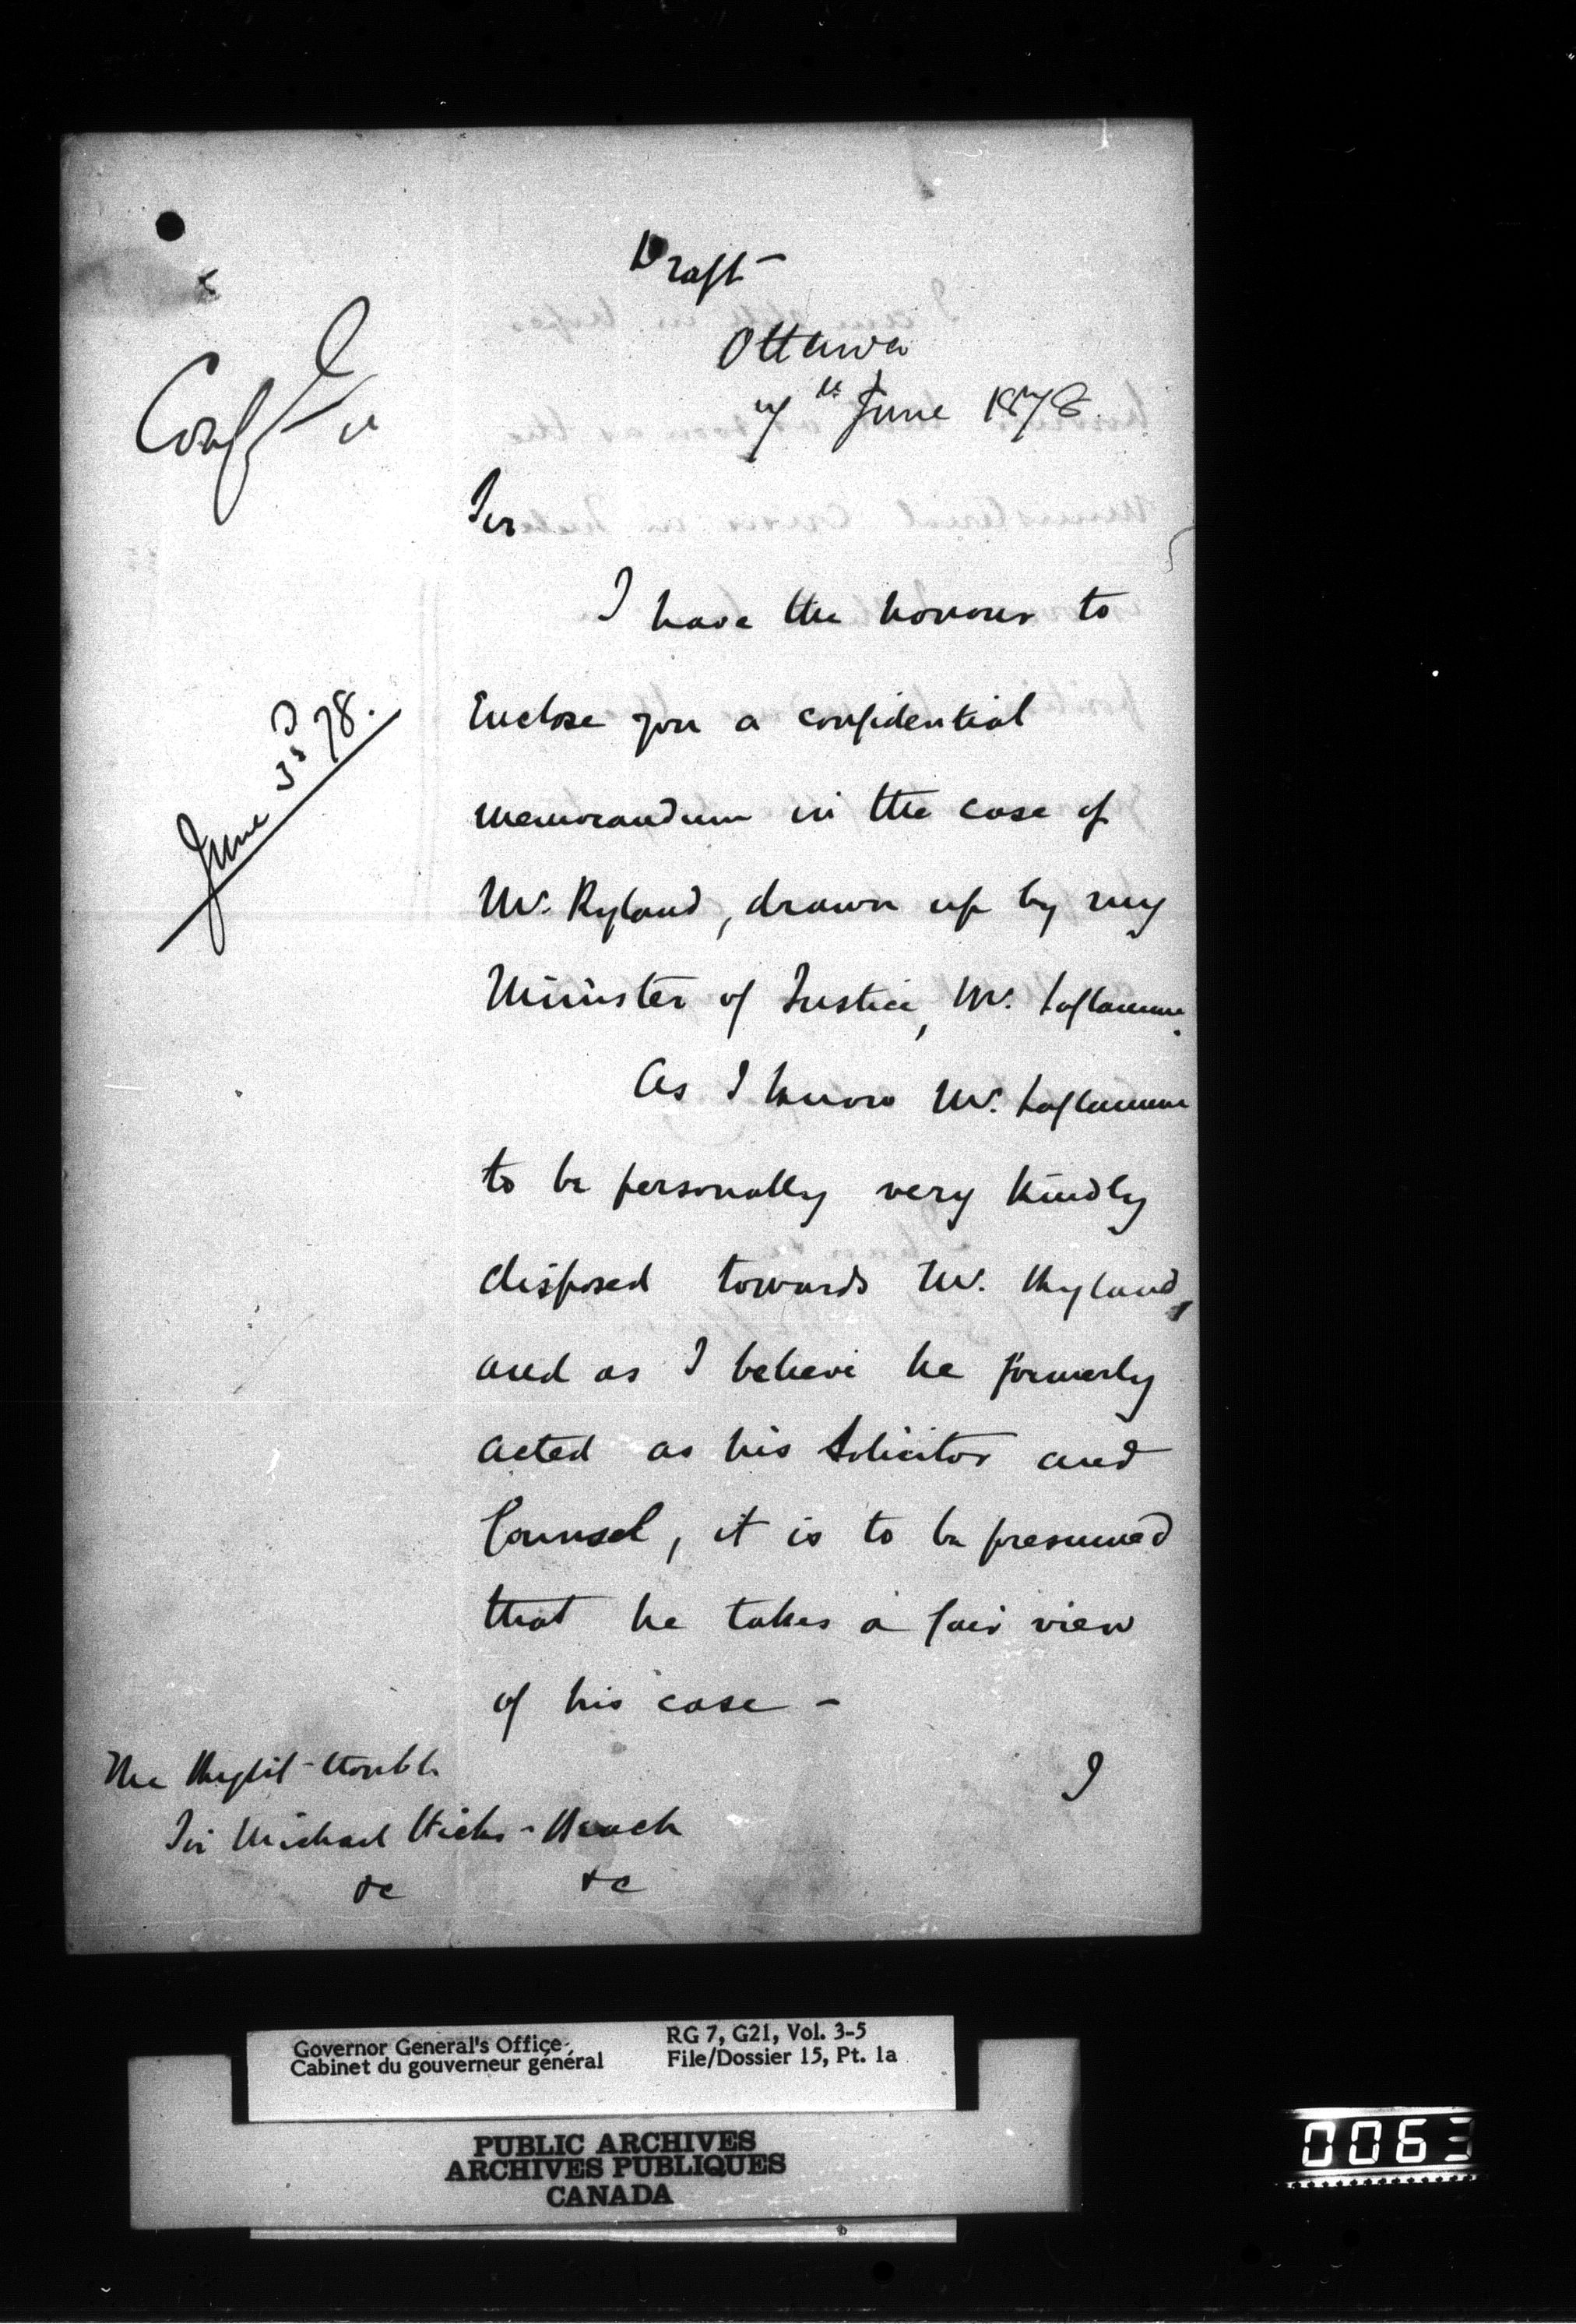 Draft
Ottawa
7th June 1878.
Conf
June 3d 78.
Sir
I have the honour to
Enclose you a confidential
memorandum in the case of
Mr. Ryland, drawn up by my
Minister of Justice, Mr. Laflamme.
As I know Mr. Laflamme
to be personally very kindly
disposed towards Mr. Ryland,
and as I believe he formerly
acted as his Solicitor and
Counsel, it is to be presumed
that he takes a fair view
of his case -
I
The Right Honble
Sir Michael Hicks-Beach
&c &c
Governor General's Office
Cabinet du gouverneur général
RG 7, G21, Vol. 3-5
File/Dossier 15, Pt. 1a
PUBLIC ARCHIVES
ARCHIVES PUBLIQUES
CANADA
0063